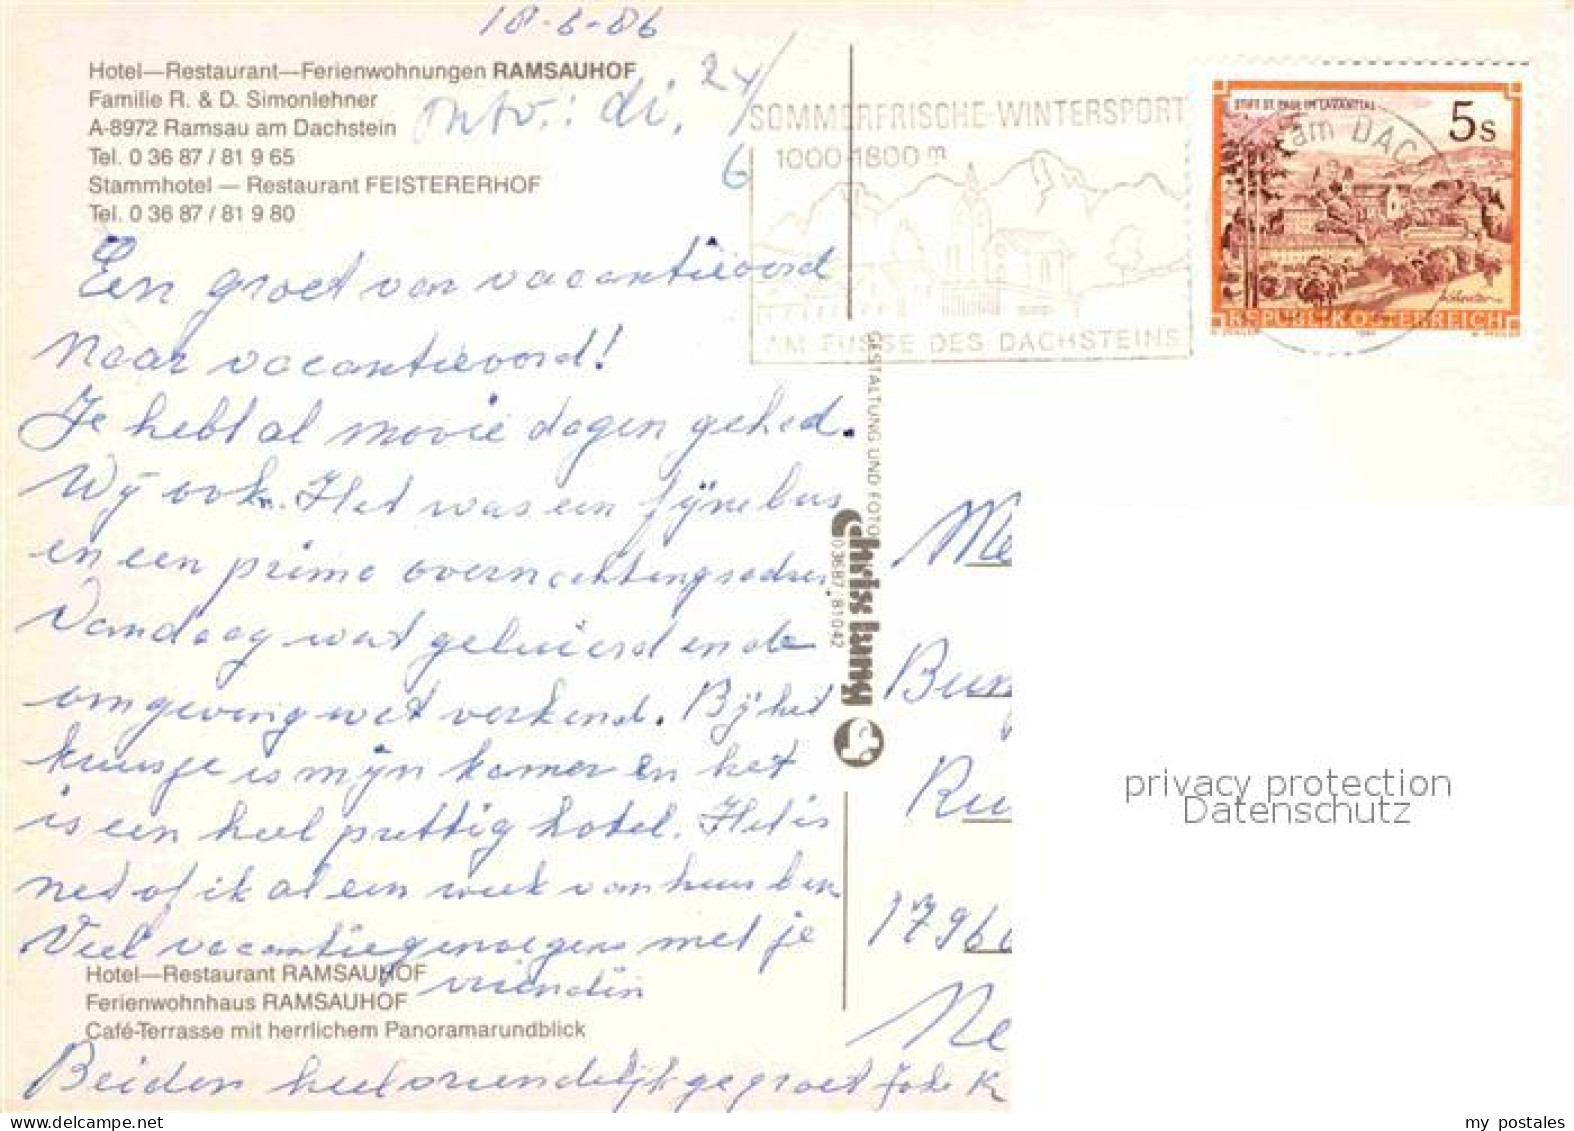 18-6-86
Hotel—Restaurant—Ferienwohnungen RAMSAUHOF
Familie R. & D. Simonlehner
A-8972 Ramsau am Dachstein
Tel. 0 36 87 / 81 9 65
Stammhotel — Restaurant FEISTERERHOF
Tel. 0 36 87 / 81 9 80
ontv.: di. 24/6
SOMMERFRISCHE-WINTERSPORT
1000-1800 m
AM FUSSE DES DACHSTEINS
STIFT ST. PAUL IM LAVANTTAL
5 S
am DACH
REPUBLIK ÖSTERREICH
Een groet van vacantieoord
naar vacantieoord!
Je hebt al mooie dagen gehad.
Wij ook. Het was een fijne bus
en een prima overnachtingsadres.
Vandaag wat geluierd en de
omgeving wat verkend. Bij het
kruisje is mijn kamer en het
is een heel prettig hotel. Het is
net of ik al een week van huis ben
Veel vacantiegenoegens met je
vriendin
Hotel—Restaurant RAMSAUHOF
Ferienwohnhaus RAMSAUHOF
Café-Terrasse mit herrlichem Panoramarundblick
Beiden heel vriendelijk gegroet
GESTALTUNG UND FOTO
chris kuny
0 36 87 / 81 0 42
Me
Bun
Ru
1796
Ne
privacy protection
Datenschutz
my postales